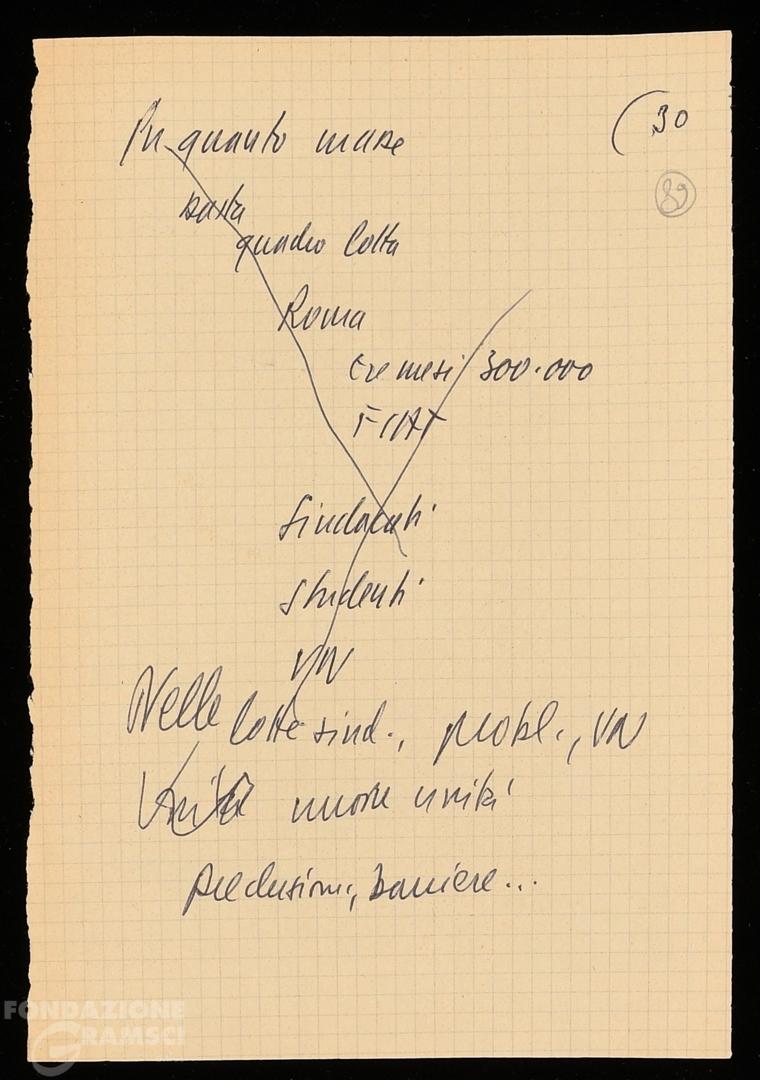 (30
In quanto masse
89
basta
quadro lotta
Roma
tre mesi 300.000
FIAT
Sindacati
Studenti
VN
Nelle lotte sind., probl., VN
Unità nuove unità
preclusioni, barriere...
FONDAZIONE
GRAMSCI